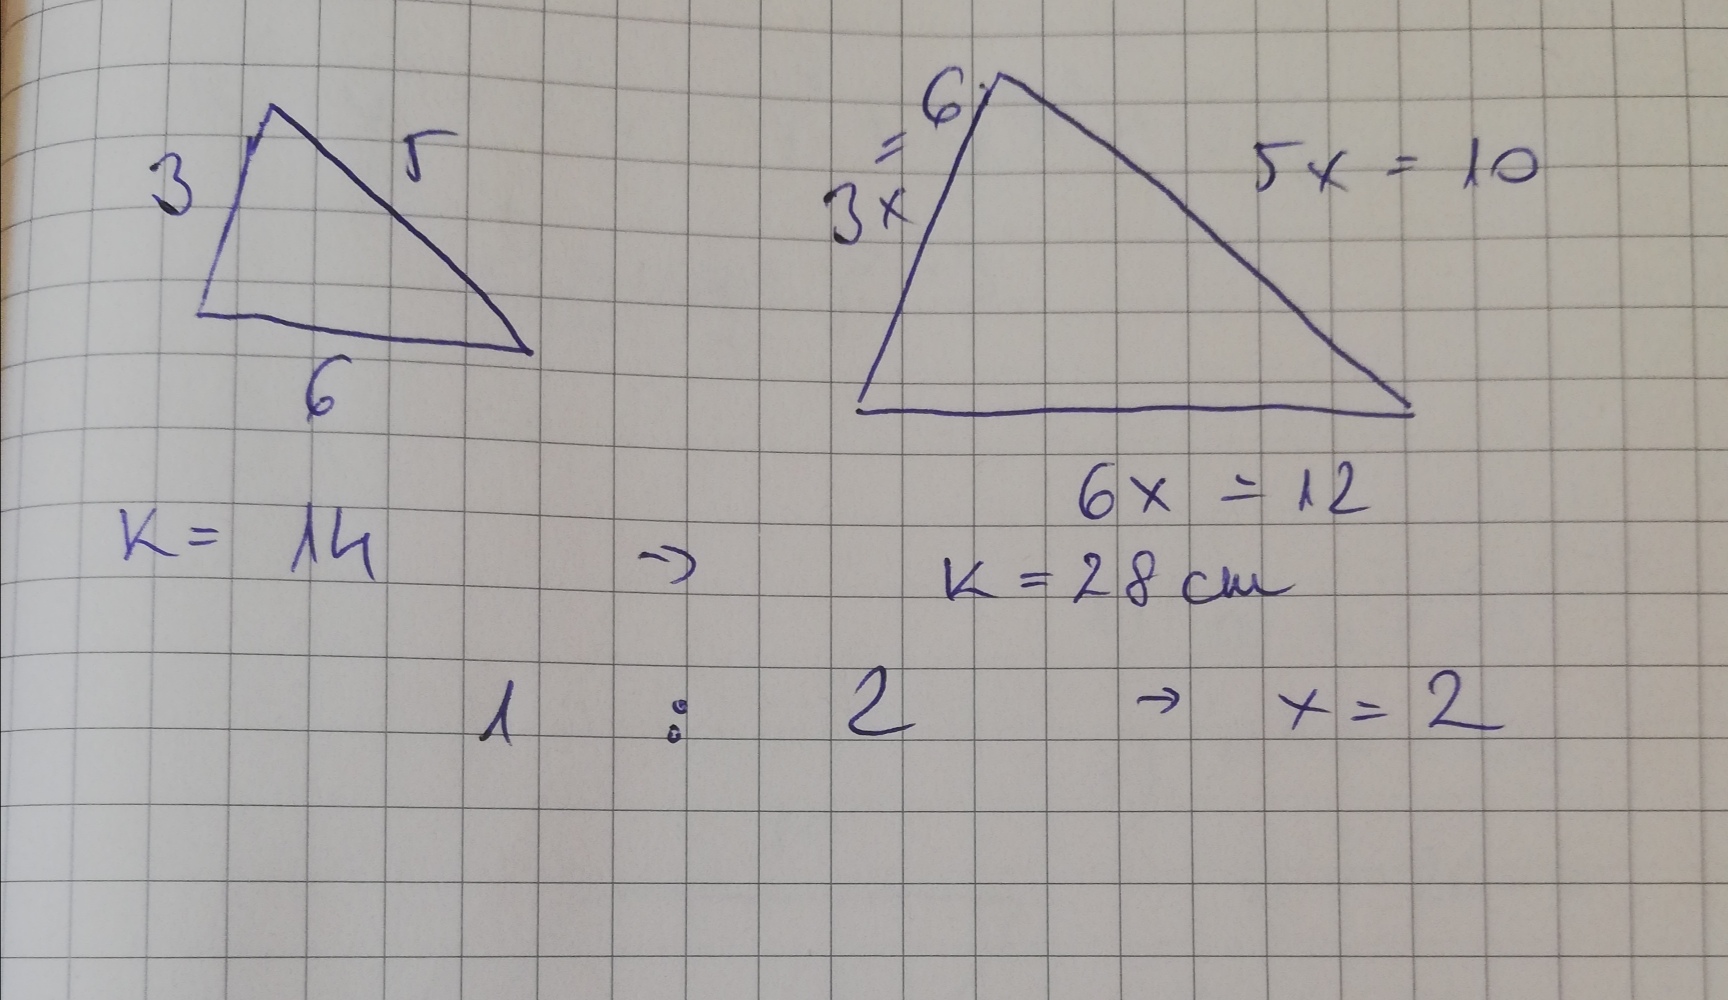 6
3
5
=
5x = 10
3x
6
6x = 12
K = 14
→
K = 28 cm
1 : 2 → x = 2